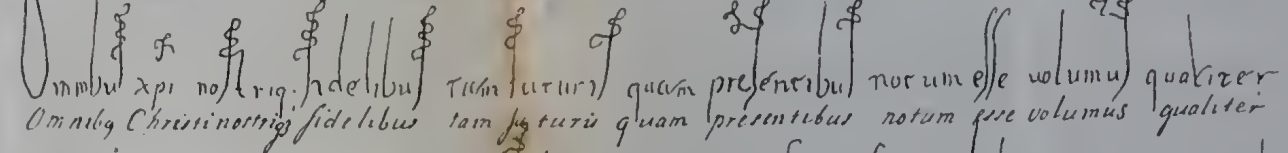 Omnibus xpi nostriq. fidelibus tam futuris quam presentibus notum esse volumus qualiter
Omnibq Christi nostriqȝ fidelibus tam futuris quam presentibus notum esse volumus qualiter